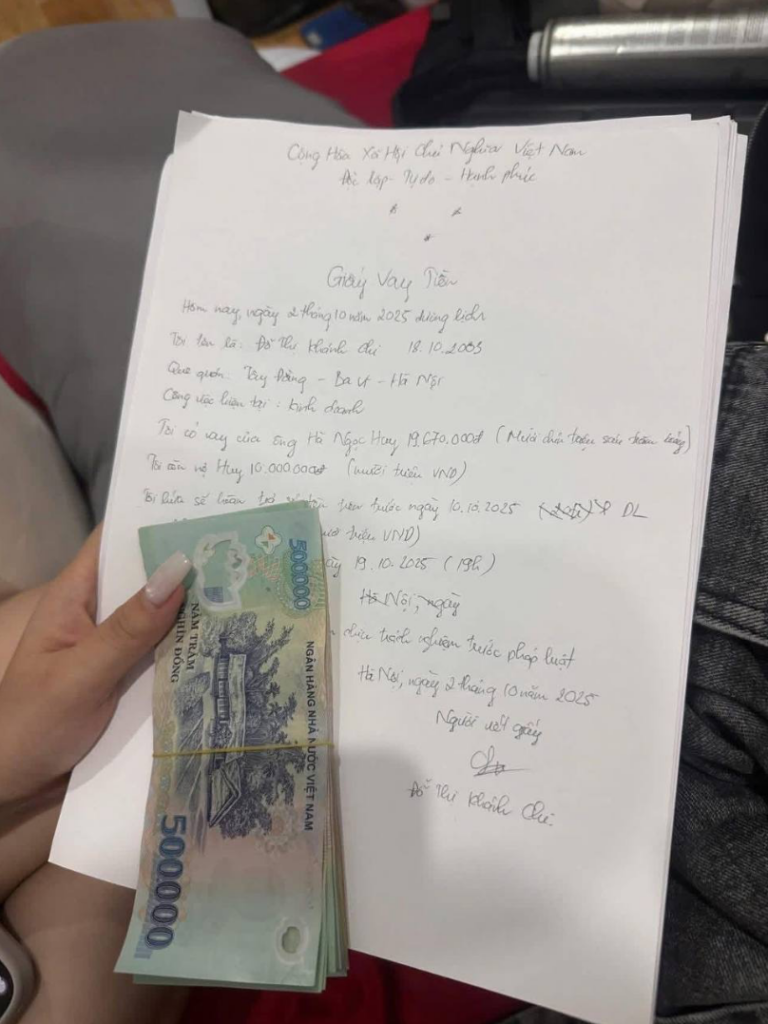 Cộng Hòa Xã Hội Chủ Nghĩa Việt Nam
Độc lập - Tự do - Hạnh phúc
Giấy Vay Tiền
Hôm nay, ngày 2 tháng 10 năm 2025 dương lịch
Tôi tên là: Đỗ Thị Khánh Chi 18.10.2003
Quê quán: Tây Đằng - Ba Vì - Hà Nội
Công việc hiện tại: kinh doanh
Tôi có vay của ông Hà Ngọc Huy 19.670.000đ (Mười chín triệu sáu trăm bảy)
Tôi còn nợ Huy 10.000.000đ (mười triệu VND)
Tôi hứa sẽ hoàn trả trước ngày 10.10.2025 DL
triệu VND)
ngày 19.10.2025 (19h)
Hà Nội, ngày
chịu trách nghiệm trước pháp luật
Hà Nội, ngày 2 tháng 10 năm 2025
Người viết giấy
Đỗ Thị Khánh Chi
500000
NGÂN HÀNG NHÀ NƯỚC VIỆT NAM
NĂM TRĂM
NGHÌN ĐỒNG
500000